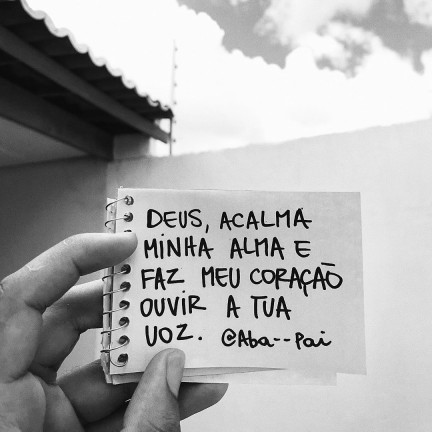 DEUS, ACALMA
MINHA ALMA E
FAZ MEU CORAÇÃO
OUVIR A TUA
VOZ. @Aba--Pai